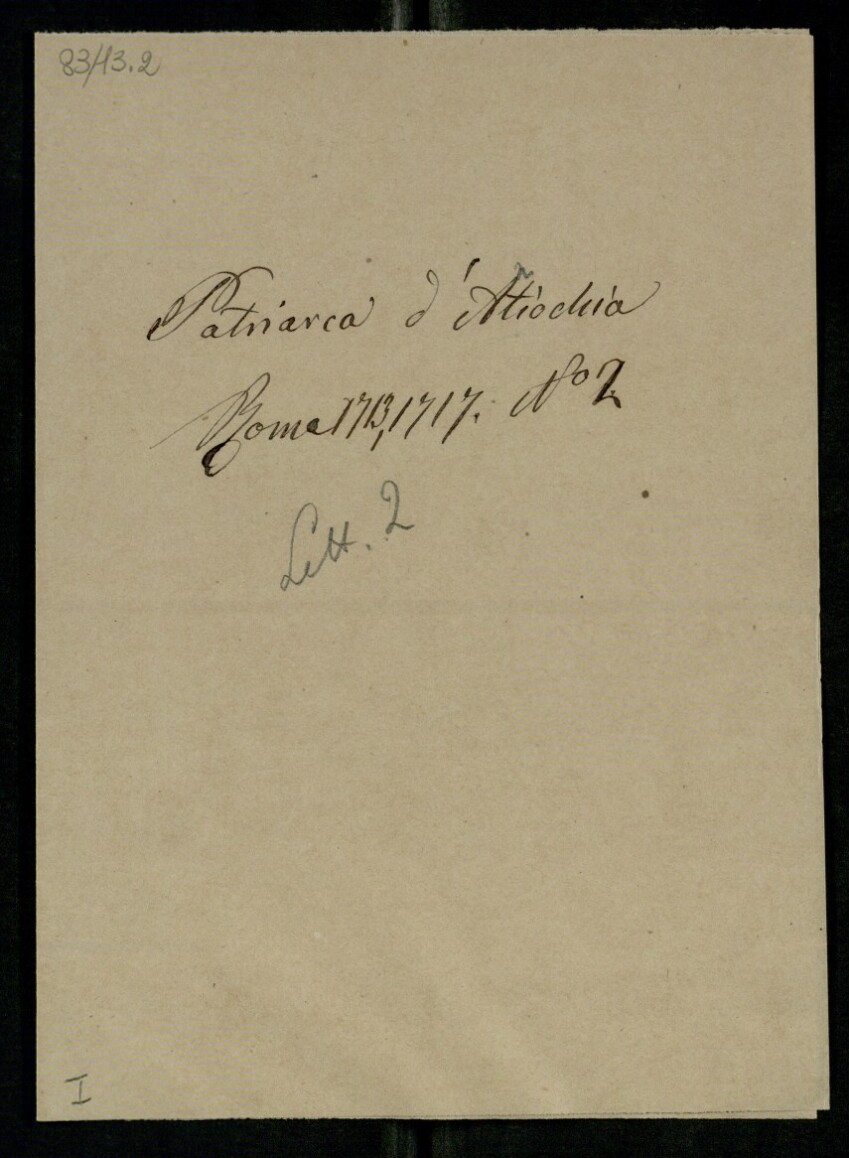 83/13.2
Patriarca d'Antiochia
Roma 1713, 1717. No 2
Lett. 2
I